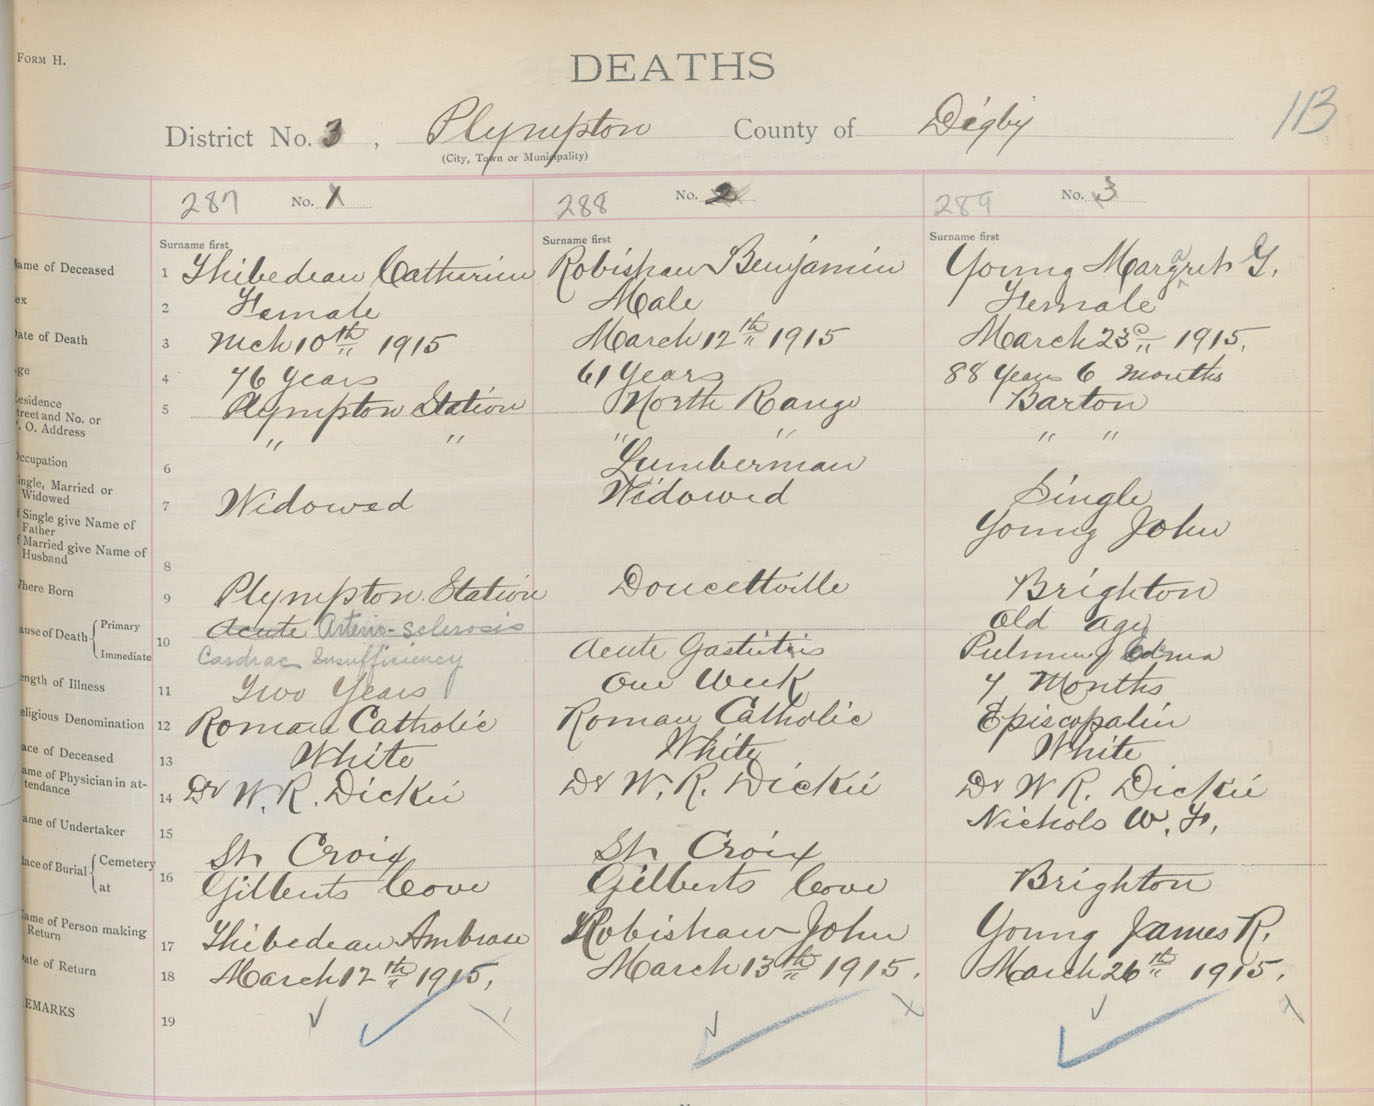 FORM H.
DEATHS
113
District No. 3, Plympton County of Digby
(City, Town or Municipality)
287 No. 1
288 No. 2
289 No. 3
Surname first
Surname first
Surname first
ame of Deceased 1 Thibedeau Catherine Robishaw Benjamin Young Margret G.
a
ex 2 Female Male Female
ate of Death 3 Mch 10th 1915 March 12th 1915 March 23d 1915.
ge 4 76 Years 61 Years 88 Years 6 Months
esidence
treet and No. or
. O. Address
5 Plympton Station North Range Barton
" " " " " "
ccupation 6 Lumberman
ingle, Married or
Widowed
7 Widowed Widowed Single
f Single give Name of
Father
Young John
f Married give Name of
Husband
8
here Born 9 Plympton Station Doucettville Brighton
ause of Death { Primary Acute Arterio-Sclerosis Old age
10
Immediate Cardiac Insufficiency Acute Gastritis Pulmunry Edma
ength of Illness 11 Two Years One Week 7 Months
eligious Denomination 12 Roman Catholic Roman Catholic Episcopalin
ace of Deceased 13 White White White
ame of Physician in at-
tendance
14 Dr W. R. Dickie Dr W. R. Dickie Dr W R. Dickie
ame of Undertaker 15 Nichols W. F.
lace of Burial { Cemetery St. Croix St. Croix
16
at Gilberts Cove Gilberts Cove Brighton
ame of Person making
Return
17 Thibedeau Ambrose Robishaw John Young James R.
ate of Return 18 March 12th 1915, March 13th 1915. March 26th 1915.
EMARKS 19